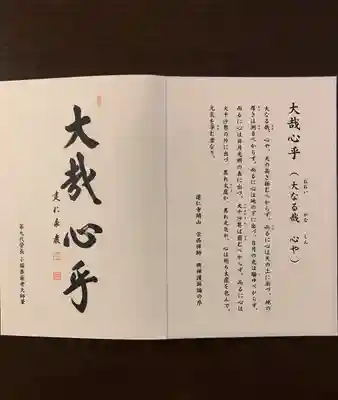 大哉心乎(大なる哉 心や)
おおい かな しん
大なる哉、心や。天の高き極むべからず、而るに心は天の上に出づ。地の
厚きは測るべからず、而るに心は地の下に出づ。日月の光は踰ゆべからず、
而るに心は日月光明の表に出づ。大千沙界は窮むべからず、而るに心は
大千沙界の外に出づ。其れ太虚か、其れ元気か、心は則ち太虚を包んで、
元気を孕む者なり。
建仁寺開山 栄西禅師 興禅護國論の序
大哉心乎
建仁泰巌
第九代管長 小堀泰巌老大師筆